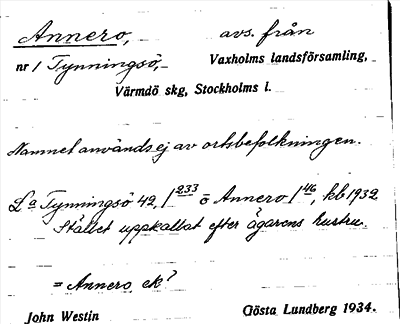 Annero, avs. från
nr 1 Tynningsö, Vaxholms landsförsamling,
Värmdö skg, Stockholms l.
Namnet användes ej av ortsbefolkningen.
La Tynningsö 42, 1 233 ö Annero 1 46, kb 1932
Stället uppkallat efter ägarens hustru.
= Annero, ek?
John Westin Gösta Lundberg 1934.